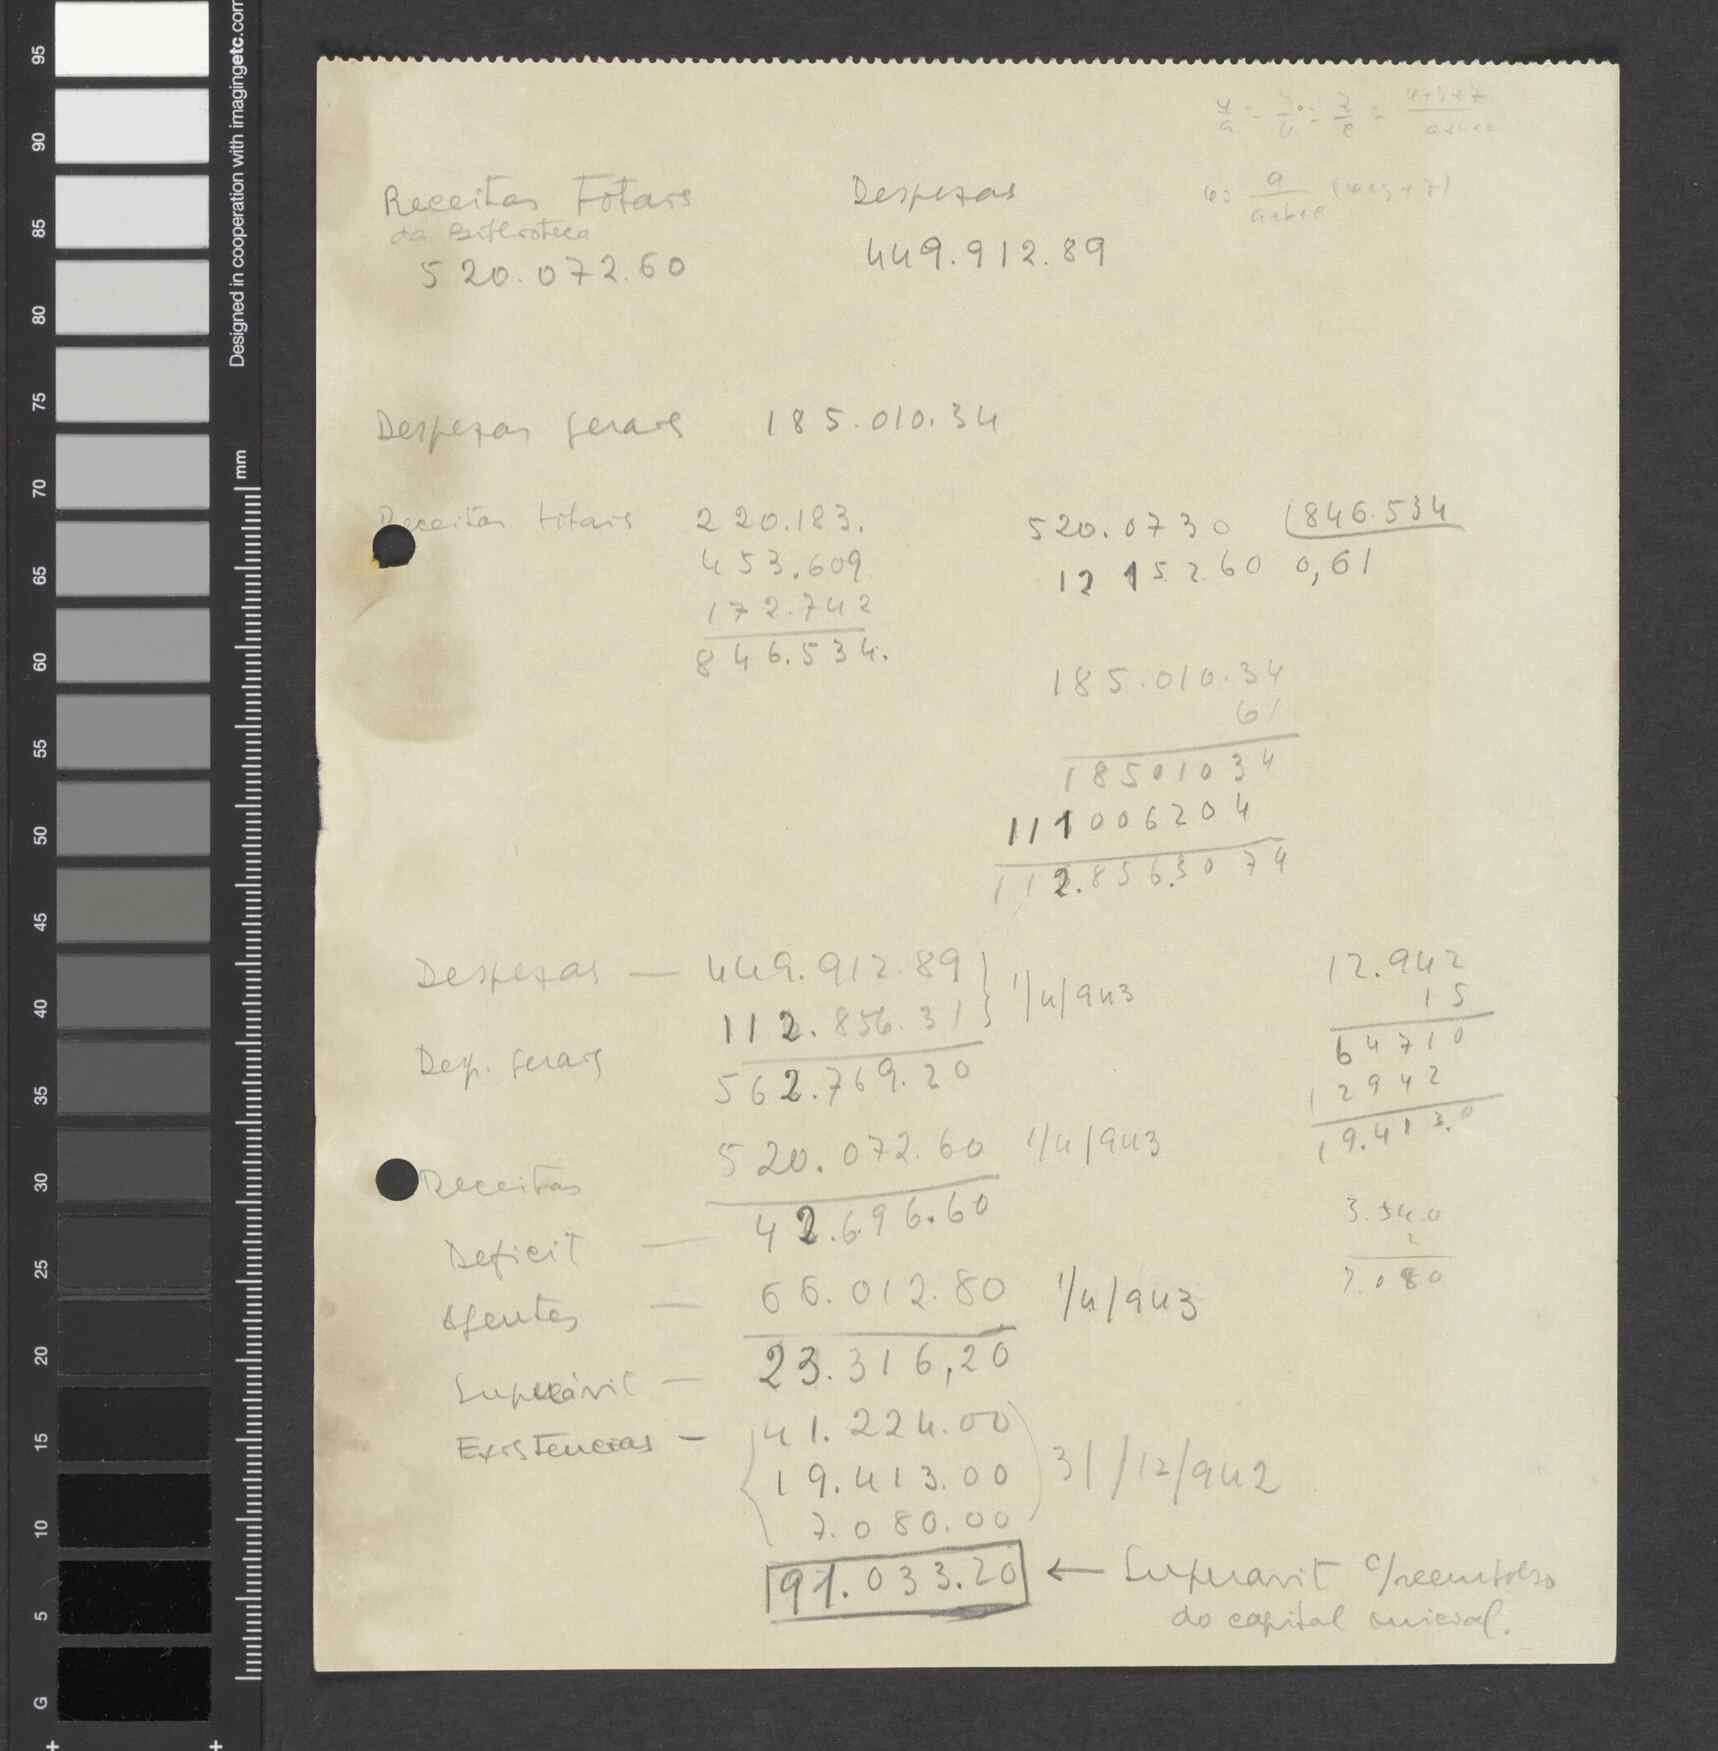 Receitas Totais Despezas
da Biblioteca
520.072.60 449.912.89
Despezas gerais 185.010.34
Receitas totais 220.183. 520.0730 846.534
453.609 1215260 0,61
172.742
846.534.
185.010.34
61
18501034
111006204
112.8563074
Despezas — 449.912.89 1/4/943
Desp. gerais 112.856.31
562.769.20
Receitas 520.072.60 1/4/943
Deficit — 42.696.60
Agentes — 66.012.80 1/4/943
Superávit — 23.316,20
Existencias — 41.224.00 31/12/942
19.413.00
7.080.00
91.033.20 ← Superavit c/reembolso
do capital inicial.
12.942
15
64710
12942
19.413.0
3.540
2
7.080
Designed in cooperation with imagingetc.com
mm
95
90
85
80
75
70
65
60
55
50
45
40
35
30
25
20
15
10
5
G